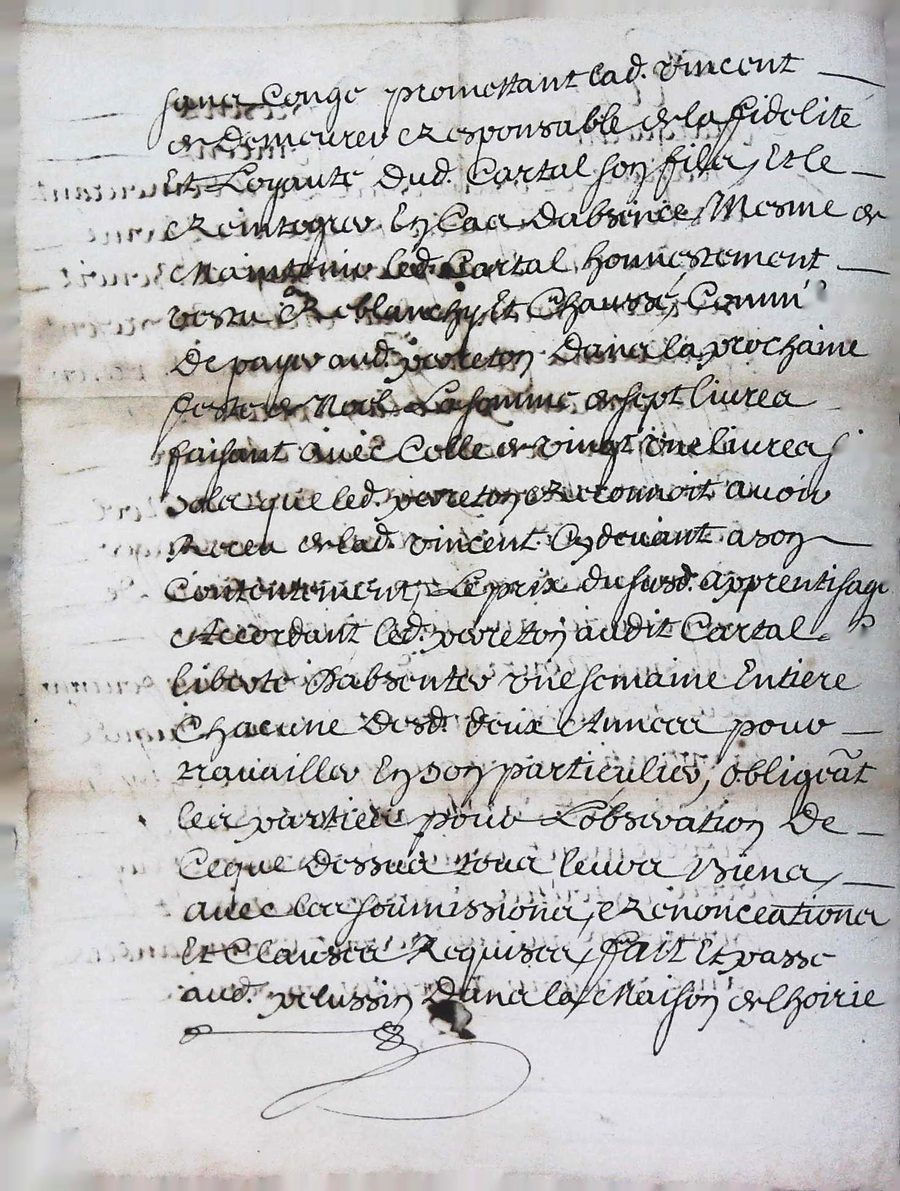 sans Congé promettant lad. vincent
de Demeurer Responsable de la fidelité
Et Loyauté dud. Cartal son fils, Et le
Reintegrer En Cas dabsence, Mesme de
Maintenir led. Cartal honnestement
vestu Reblanchy Et Chaussé, Comm'
De payer aud. perreton Dans la prochaine
feste de Noel La somme de sept livres
faisant avec Celle de vingt une livres
sols que led. perreton Reconnoit avoir
Receu de lad. vincent Cy devant a son
Contentement, Le prix du susd. apprentisage
Accordant led. perreton audit Cartal
liberté Dabsenter une semaine Entiere
Chacune Desd. deux Annees pour
travailler En son particulier, obligeat
les parties pour Lobservation De
Ceque Dessus tous leurs Biens,
avec les soumissions, Renonceations
Et Clauses Requises, ffait Et passé
aud. pelussin Dans la Maison de lhoirie